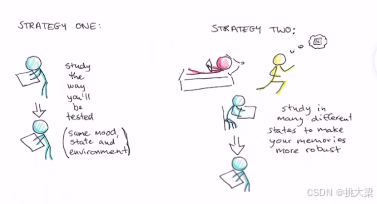 STRATEGY ONE:
study
the
way
you'll
be
tested
(same mood,
state and
environment)
STRATEGY TWO:
study in
many different
states to make
your memories
more robust
CSDN @挑大梁